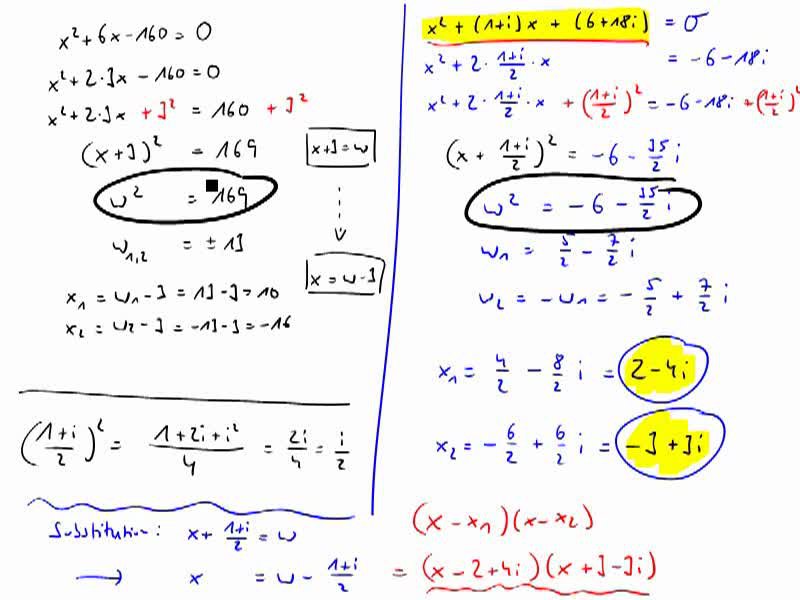 x² + 6x - 160 = 0
x² + 2·3x - 160 = 0
x² + 2·3x + 3² = 160 + 3²
(x+3)² = 169
x+3 = w
w² = 169
w₁,₂ = ± 13
x = w-3
x₁ = w₁ - 3 = 13 - 3 = 10
x₂ = w₂ - 3 = -13 - 3 = -16
((1+i)/2)² = (1+2i+i²)/4 = 2i/4 = i/2
Substitution: x + (1+i)/2 = w
→ x = w - (1+i)/2
x² + (1+i)x + (6+18i) = 0
x² + 2·(1+i)/2·x = -6-18i
x² + 2·(1+i)/2·x + ((1+i)/2)² = -6-18i + ((1+i)/2)²
(x + (1+i)/2)² = -6 - 35/2 i
w² = -6 - 35/2 i
w₁ = 5/2 - 7/2 i
w₂ = -w₁ = -5/2 + 7/2 i
x₁ = 4/2 - 8/2 i = 2-4i
x₂ = -6/2 + 6/2 i = -3+3i
(x-x₁)(x-x₂)
= (x-2+4i)(x+3-3i)